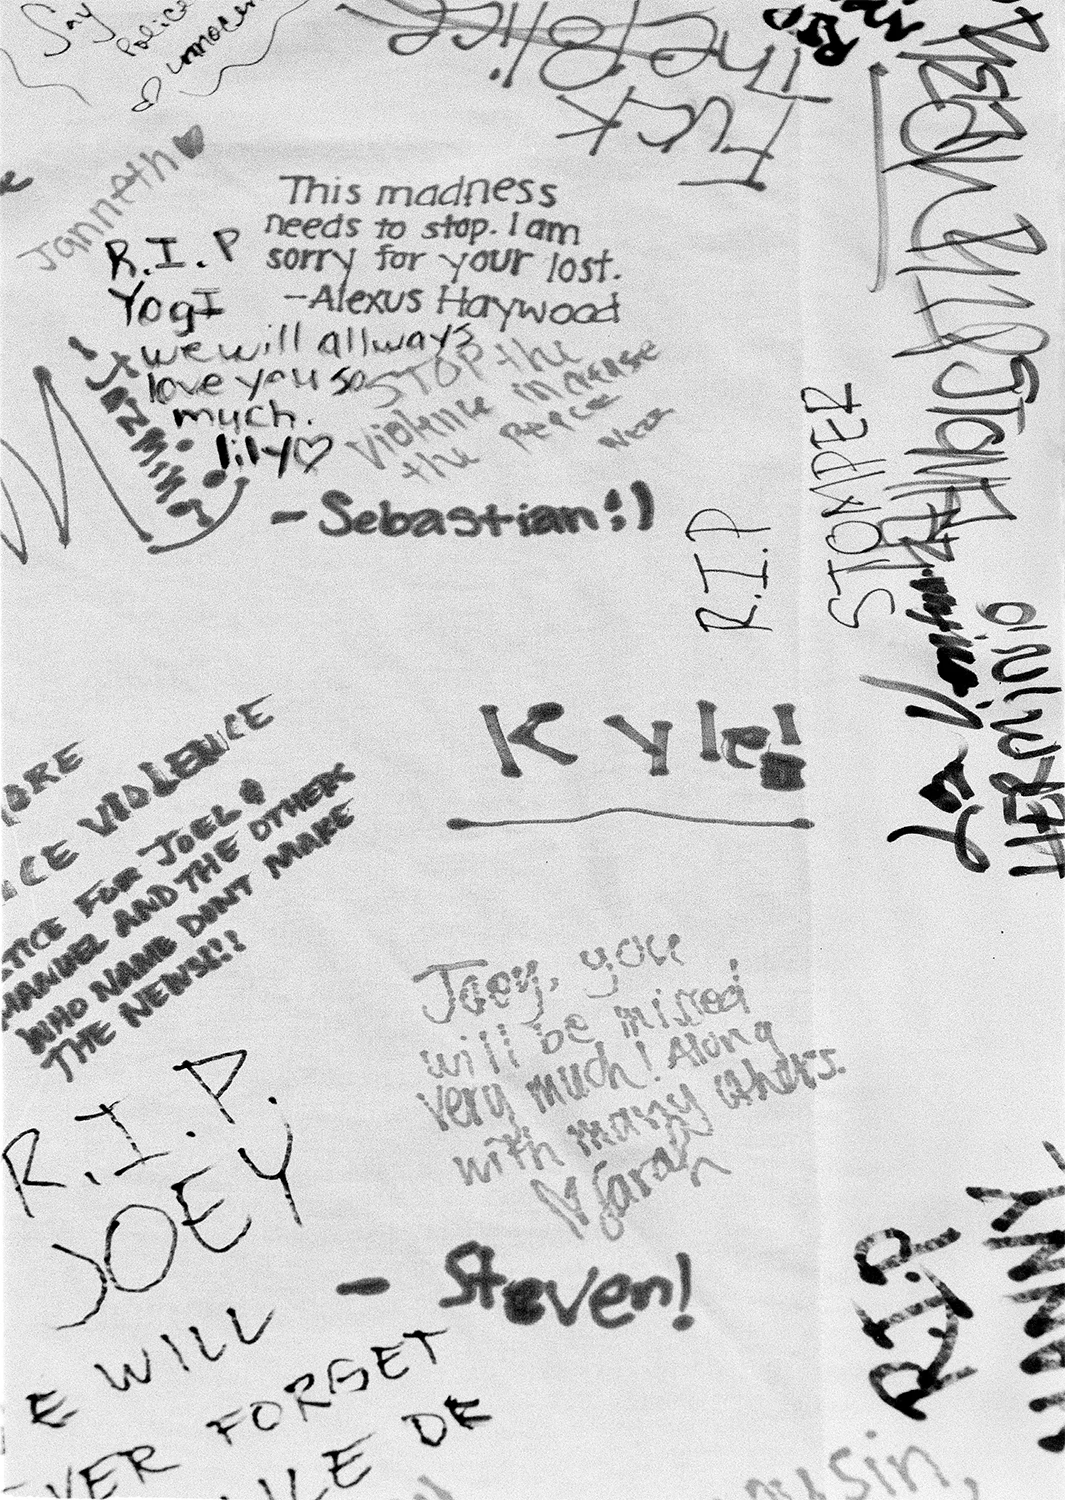 Say
Police
innocen
Fuck
the Police
RIP
Janneth
This madness
needs to stop. I am
sorry for your lost.
-Alexus Haywood
R.I.P
YogI
we will allways
love you so
much.
lily♡
Jazmin
STOP the
violence increase
the Peace
- Sebastian!)
R.I.P
STOMPER
HERMiNiO
Kyle!
ORE
ICE VIOLENCE
STICE FOR JOEL &
MANUEL AND THE OTHERS
WHO NAME DONT MAKE
THE NEWS!!!
Joey, you
will be missed
very much! Along
with many others.
Sarah
R.I.P.
JOEY
- Steven!
E WILL
VER FORGET
DE
R.I.P
MANNY
usin,